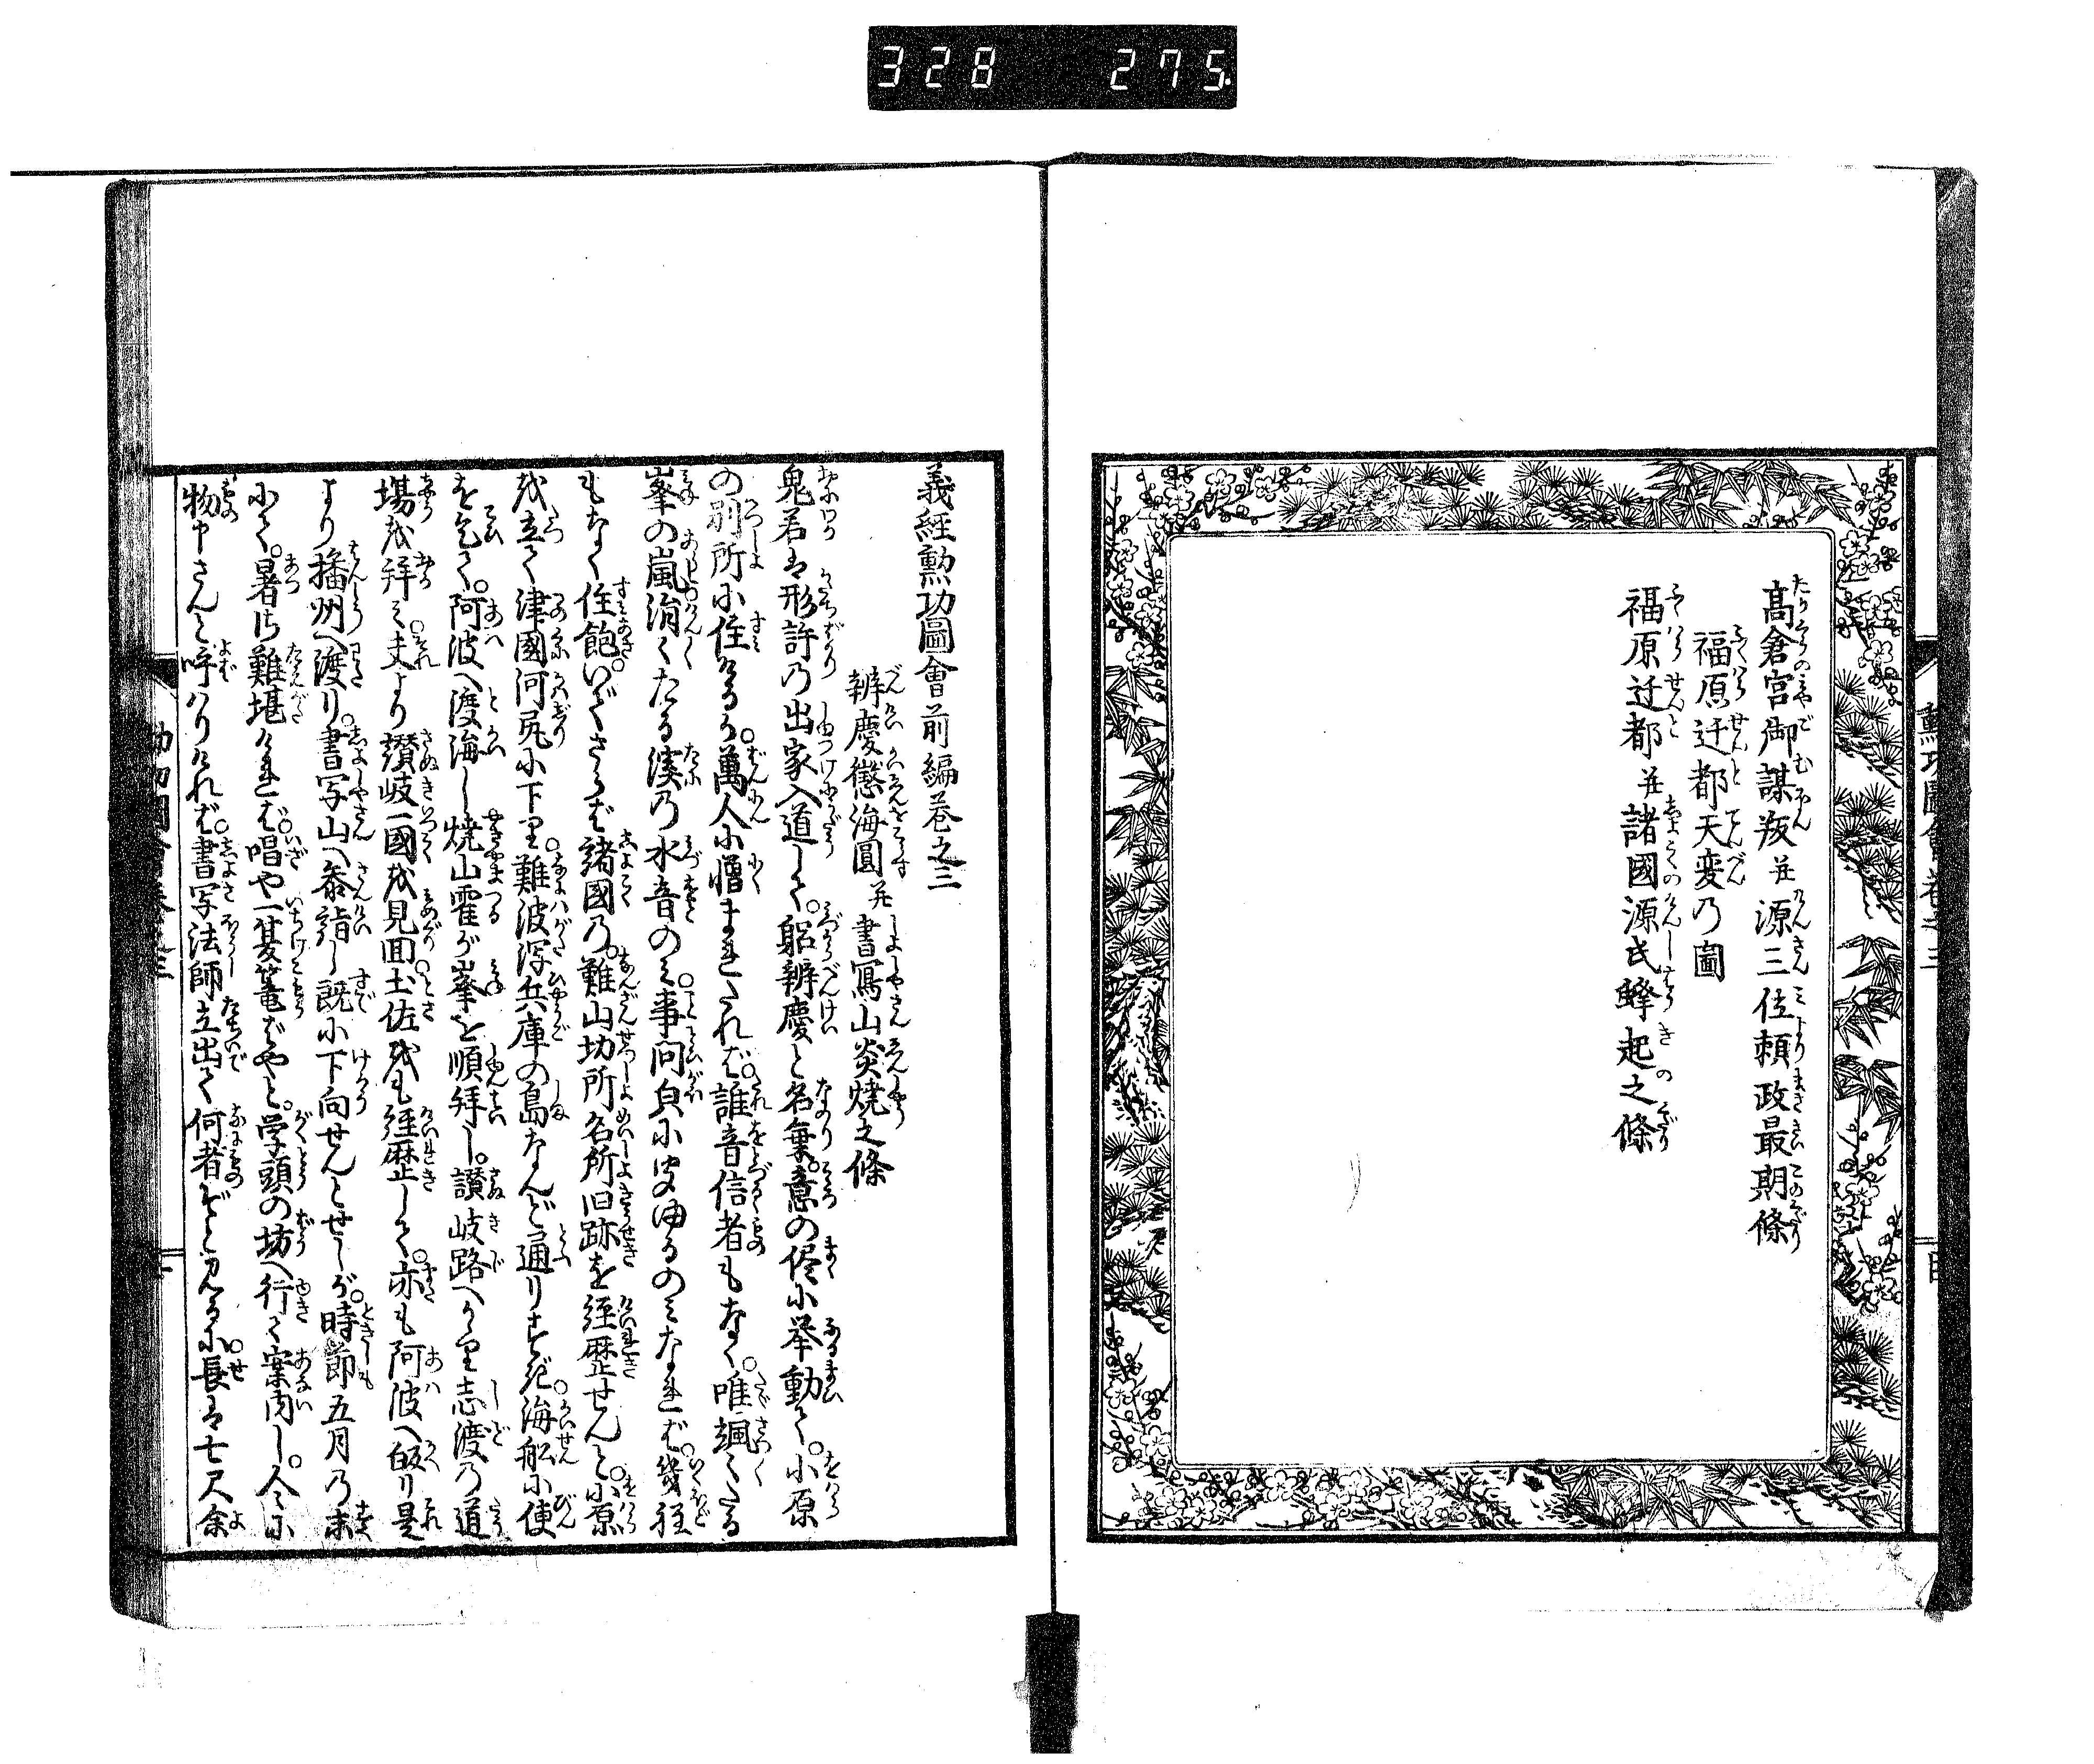 328 275
高倉宮御謀叛并源三位頼政最期條
福原迁都天変乃圖
福原迁都并諸國源氏蜂起之條
義経勲功圖會前編巻之三
辨慶懲海圓并書寫山炎焼之條
鬼若は形許乃出家入道して。躬辨慶と名乗。意の侭に挙動て。小原
の別所に住けるが。萬人に憎まれたれば。誰音信者もなく。唯颯々たる
峯の嵐涓々たる渓乃水音のみ。事問㒵に聞ゆるのみなれば。幾程
もなく住飽。いでさらば諸國乃。難山切所名所旧跡を経歴せんと。小原
を立て津國河尻に下り。難波潟兵庫の島なんど通りすぎ。海舩に便
を乞て。阿波へ渡海し焼山霍が峯を順拝し。讃岐路へかゝり志渡乃道
場を拝み。夫より讃岐一國を見囬。土佐をも経歴して。亦も阿波へ皈り是
より播州へ渡り。書写山へ参詣し既に下向せんとせしが。時節五月乃末
にて。暑さ難堪ければ。唱や一夏篭ばやと。学頭の坊へ行て案内し。人々に
物申さんと呼はりければ。書写法師立出て何者ぞと見るに。長は七尺余